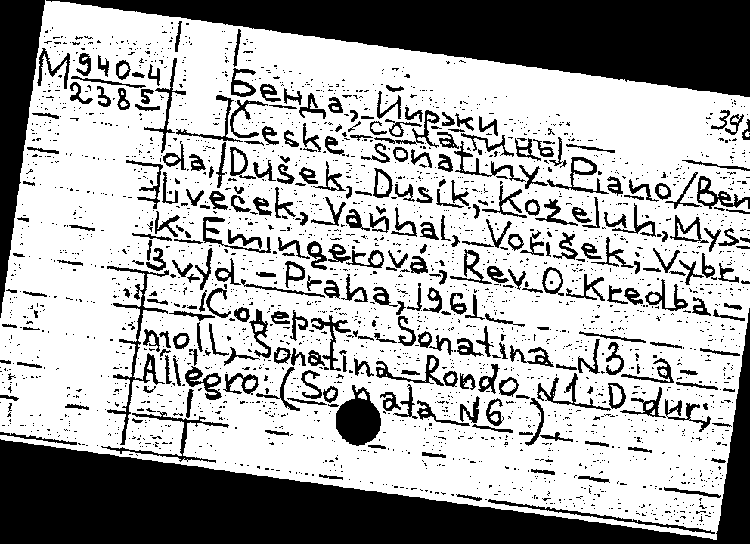 M 940-4
2385
398
Бенда, Йиржи
сонатины
České sonatiny: Piano/Ben
da, Dušek, Dusík, Koželuh, Mys-
liveček, Vaňhal, Voříšek; Vybr.
K. Emingerová; Rev. O. Kredba.-
3.vyd. - Praha, 1961.
Содерж.: Sonatina N3: a-
moll; Sonatina-Rondo N1: D-dur;
Allegro: (Sonata N6).